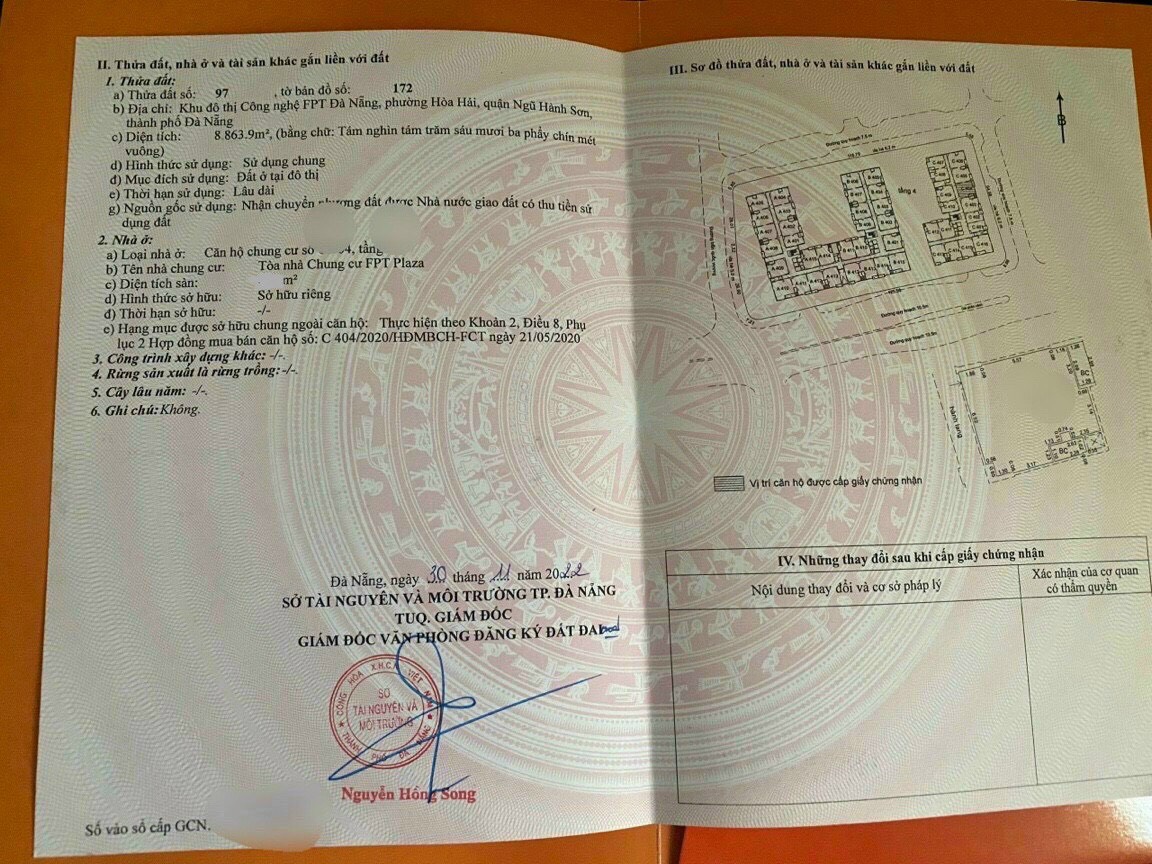 II. Thửa đất, nhà ở và tài sản khác gắn liền với đất
1. Thửa đất:
a) Thửa đất số: 97 , tờ bản đồ số: 172
b) Địa chỉ: Khu đô thị Công nghệ FPT Đà Nẵng, phường Hòa Hải, quận Ngũ Hành Sơn,
thành phố Đà Nẵng
c) Diện tích: 8.863.9m², (bằng chữ: Tám nghìn tám trăm sáu mươi ba phẩy chín mét
vuông)
d) Hình thức sử dụng: Sử dụng chung
đ) Mục đích sử dụng: Đất ở tại đô thị
e) Thời hạn sử dụng: Lâu dài
g) Nguồn gốc sử dụng: Nhận chuyển nhượng đất được Nhà nước giao đất có thu tiền sử
dụng đất
2. Nhà ở:
a) Loại nhà ở: Căn hộ chung cư số 4, tầng
b) Tên nhà chung cư: Tòa nhà Chung cư FPT Plaza
c) Diện tích sàn: m²
d) Hình thức sở hữu: Sở hữu riêng
đ) Thời hạn sở hữu: -/-
e) Hạng mục được sở hữu chung ngoài căn hộ: Thực hiện theo Khoản 2, Điều 8, Phụ
lục 2 Hợp đồng mua bán căn hộ số: C 404/2020/HĐMBCH-FCT ngày 21/05/2020
3. Công trình xây dựng khác: -/-.
4. Rừng sản xuất là rừng trồng: -/-.
5. Cây lâu năm: -/-.
6. Ghi chú: Không.
Đà Nẵng, ngày 30 tháng 11 năm 2022
SỞ TÀI NGUYÊN VÀ MÔI TRƯỜNG TP. ĐÀ NẴNG
TUQ. GIÁM ĐỐC
GIÁM ĐỐC VĂN PHÒNG ĐĂNG KÝ ĐẤT ĐAI
CỘNG HÒA X.H.C.N VIỆT NAM
SỞ
TÀI NGUYÊN VÀ
MÔI TRƯỜNG
THÀNH PHỐ ĐÀ NẴNG
Nguyễn Hồng Song
Số vào sổ cấp GCN.
III. Sơ đồ thửa đất, nhà ở và tài sản khác gắn liền với đất
B
Đường quy hoạch 7.5 m
tầng 4
Đường quy hoạch 10.5m
Đường quy hoạch 10.5m
hành lang
BC
BC
X
Vị trí căn hộ được cấp giấy chứng nhận
IV. Những thay đổi sau khi cấp giấy chứng nhận
Nội dung thay đổi và cơ sở pháp lý
Xác nhận của cơ quan
có thẩm quyền